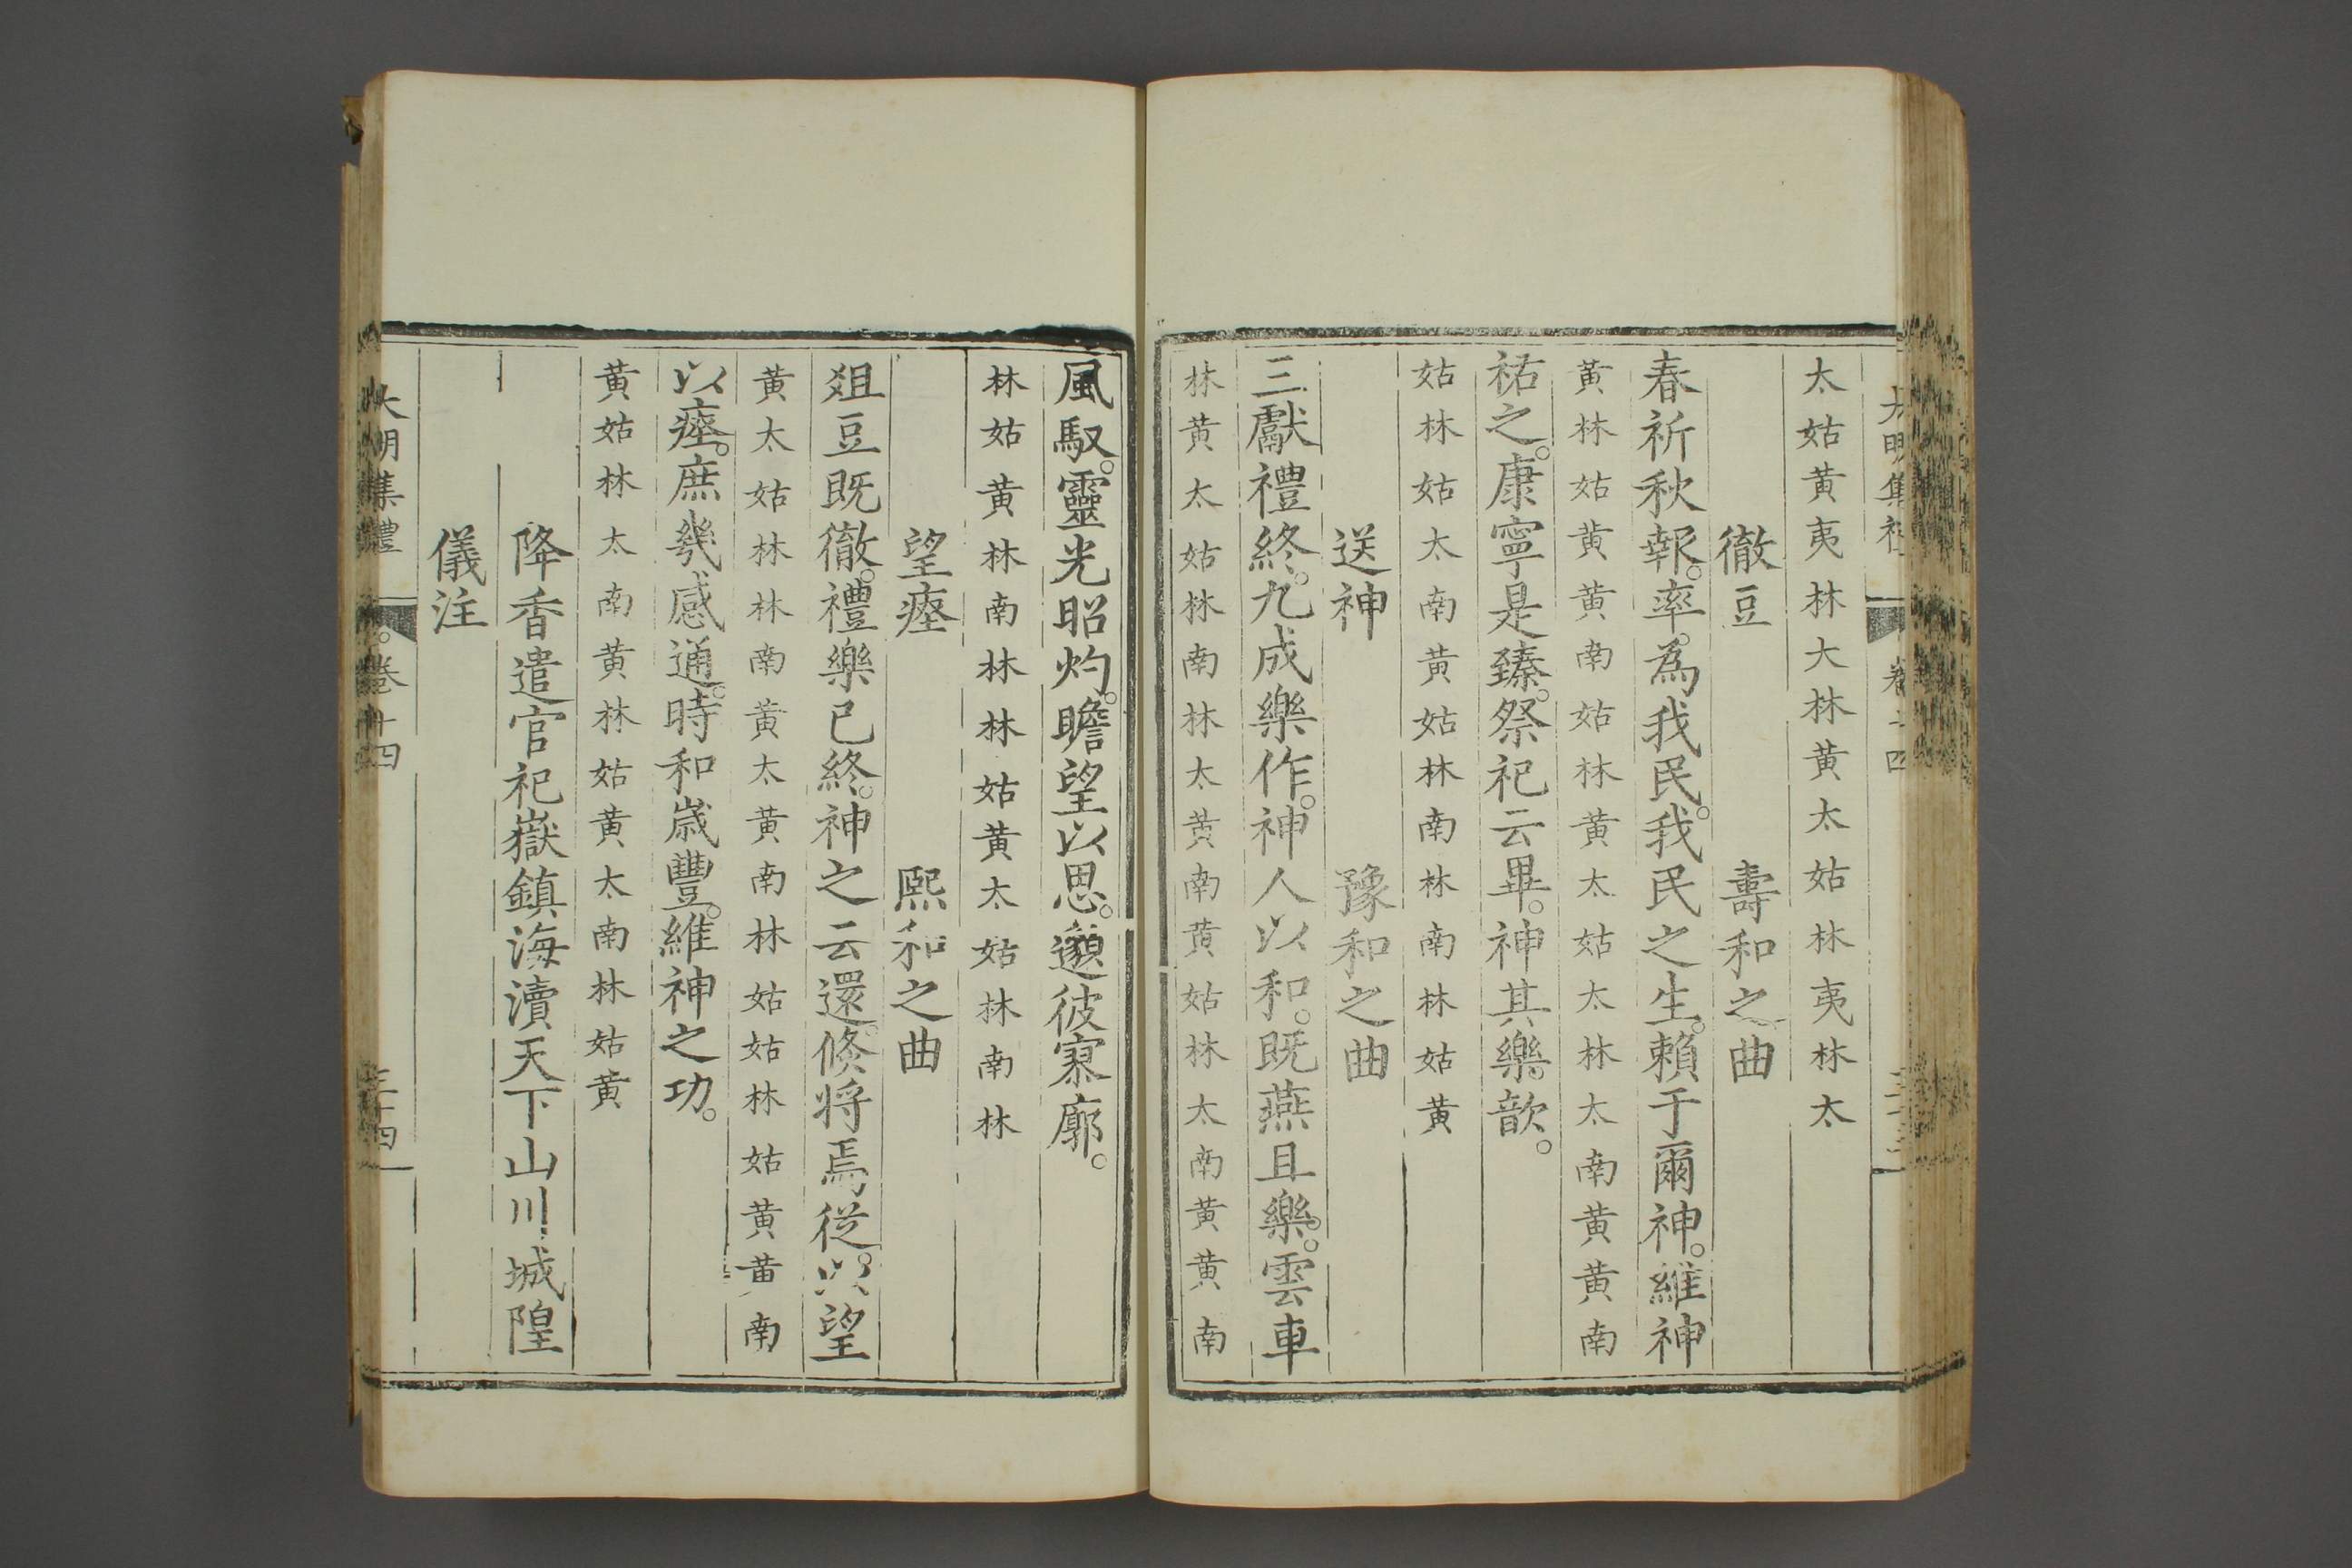 大明集禮 卷十四
太姑黄夷林大林黄太姑林夷林太
徹豆 壽和之曲
春祈秋報。率。為我民。我民之生。賴于爾神。維神
黄林姑黄黄南姑林黄太姑太林太南黄黄南
祐之。康寧是臻。祭祀云畢。神其樂。歆。
姑林姑太南黄姑林南林南林姑黄
送神 豫和之曲
三獻禮終。九成樂作。神人以和。既燕且樂。雲車
林黄太姑林南林太黄南黄姑林太南黄黄南
風馭。靈光昭灼。瞻望以思。邈彼寥廓。
林姑黄林南林林姑黄太姑林南林
望瘞 熈和之曲
俎豆既徹。禮樂已終。神之云還。倐将焉從。以望
黄太姑林林南黄太黄南林姑姑林姑黄黄南
以瘞。庶幾感通。時和嵗豐。維神之功。
黄姑林太南黄林姑黄太南林姑黄
降香遣官祀嶽鎮海瀆天下山川城隍
儀注
大明集禮 卷十四 三十四